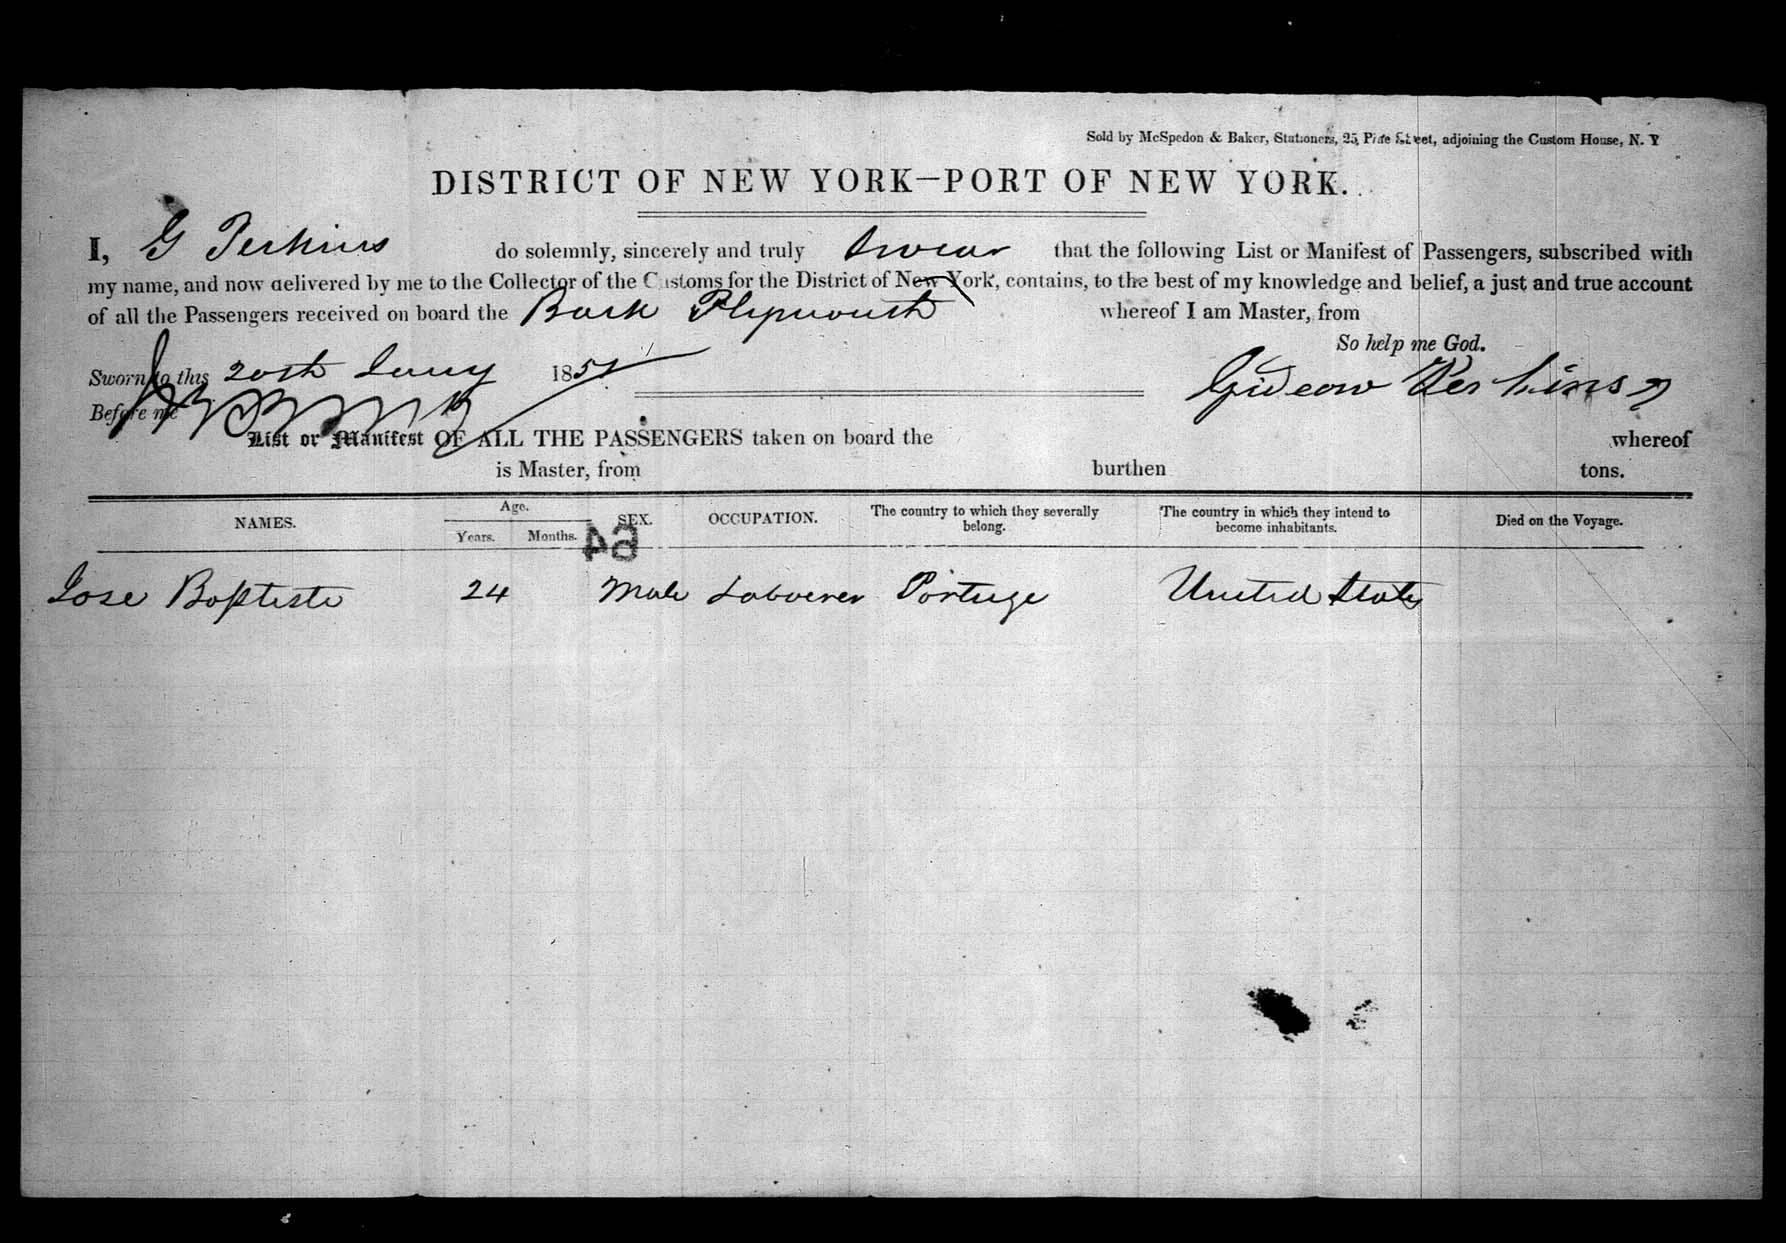 Sold by McSpedon & Baker, Stationers, 25, Pine Street, adjoining the Custom House, N. Y
DISTRICT OF NEW YORK—PORT OF NEW YORK.
I, G Perkins do solemnly, sincerely and truly swear that the following List or Manifest of Passengers, subscribed with
my name, and now delivered by me to the Collector of the Customs for the District of New York, contains, to the best of my knowledge and belief, a just and true account
of all the Passengers received on board the Bark Plymouth whereof I am Master, from
So help me God.
Sworn to this 20th Jany 1851
Gideon Perkins
Before me
List or Manifest OF ALL THE PASSENGERS taken on board the whereof
is Master, from burthen tons.
NAMES. Age. Years. Months. SEX. OCCUPATION. The country to which they severally belong. The country in which they intend to become inhabitants. Died on the Voyage.
64
Jose Baptiste 24 Male Labourer Portuge United States